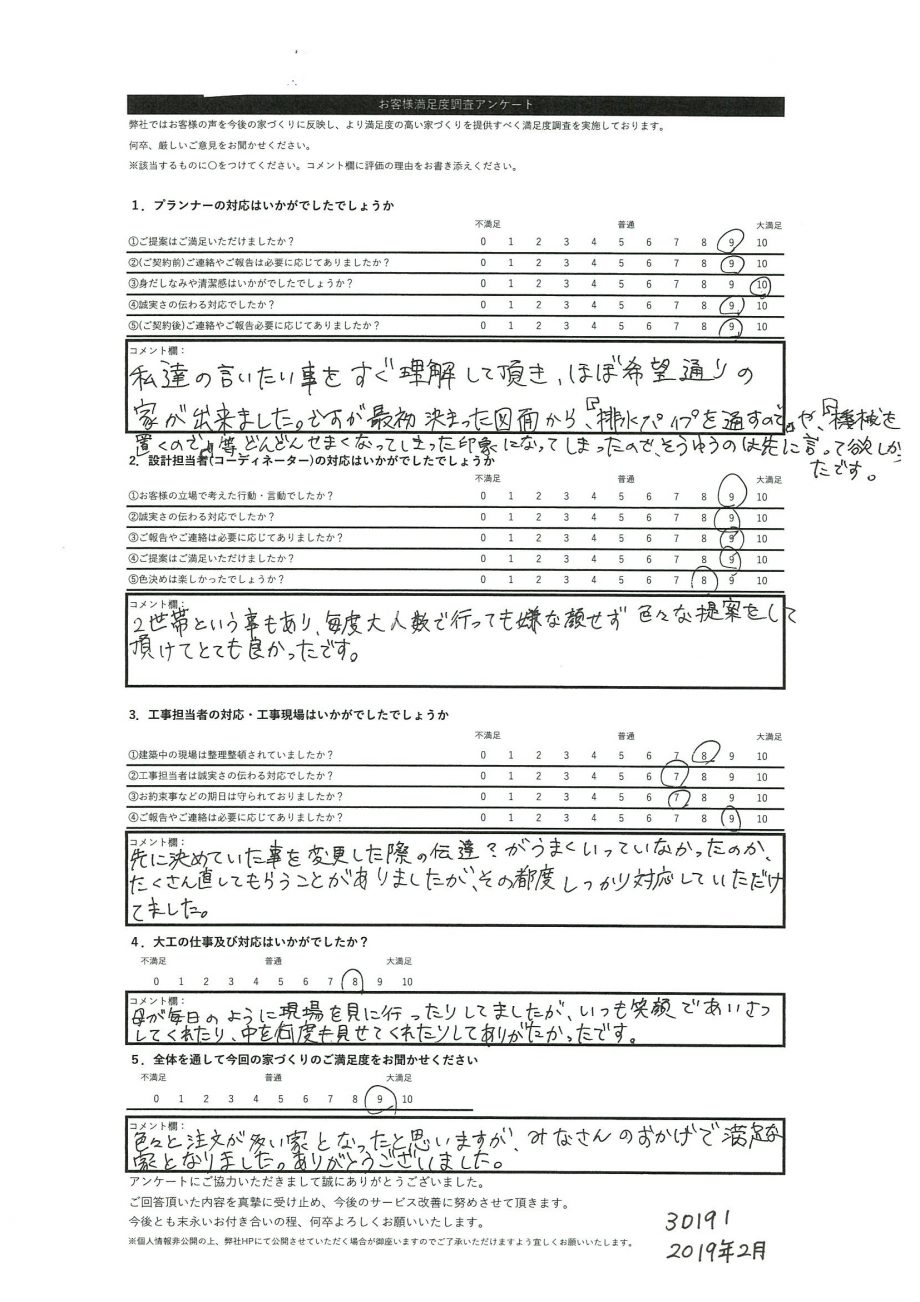 お客様満足度調査アンケート
弊社ではお客様の声を今後の家づくりに反映し、より満足度の高い家づくりを提供すべく満足度調査を実施しております。
何卒、厳しいご意見をお聞かせください。
※該当するものに〇をつけてください。コメント欄に評価の理由をお書き添えください。
1．プランナーの対応はいかがでしたでしょうか
不満足 普通 大満足
①ご提案はご満足いただけましたか？ 0 1 2 3 4 5 6 7 8 9 10
②(ご契約前)ご連絡やご報告は必要に応じてありましたか？ 0 1 2 3 4 5 6 7 8 9 10
③身だしなみや清潔感はいかがでしたでしょうか？ 0 1 2 3 4 5 6 7 8 9 10
④誠実さの伝わる対応でしたか？ 0 1 2 3 4 5 6 7 8 9 10
⑤(ご契約後)ご連絡やご報告必要に応じてありましたか？ 0 1 2 3 4 5 6 7 8 9 10
コメント欄：
私達の言いたい事をすぐ理解して頂き、ほぼ希望通りの
家が出来ました。ですが最初決まった図面から、『排水パイプを通すので』や、『機械を
置くので』等どんどんせまくなってしまった印象になってしまったので、そうゆうのは先に言って欲しかっ
たです。
2．設計担当者(コーディネーター)の対応はいかがでしたでしょうか
不満足 普通 大満足
①お客様の立場で考えた行動・言動でしたか？ 0 1 2 3 4 5 6 7 8 9 10
②誠実さの伝わる対応でしたか？ 0 1 2 3 4 5 6 7 8 9 10
③ご報告やご連絡は必要に応じてありましたか？ 0 1 2 3 4 5 6 7 8 9 10
④ご提案はご満足いただけましたか？ 0 1 2 3 4 5 6 7 8 9 10
⑤色決めは楽しかったでしょうか？ 0 1 2 3 4 5 6 7 8 9 10
コメント欄：
2世帯という事もあり、毎度大人数で行っても嫌な顔せず色々な提案をして
頂けてとても良かったです。
3．工事担当者の対応・工事現場はいかがでしたでしょうか
不満足 普通 大満足
①建築中の現場は整理整頓されていましたか？ 0 1 2 3 4 5 6 7 8 9 10
②工事担当者は誠実さの伝わる対応でしたか？ 0 1 2 3 4 5 6 7 8 9 10
③お約束事などの期日は守られておりましたか？ 0 1 2 3 4 5 6 7 8 9 10
④ご報告やご連絡は必要に応じてありましたか？ 0 1 2 3 4 5 6 7 8 9 10
コメント欄：
先に決めていた事を変更した際の伝達？がうまくいっていなかったのか、
たくさん直してもらうことがありましたが、その都度しっかり対応していただけ
てました。
4．大工の仕事及び対応はいかがでしたか？
不満足 普通 大満足
0 1 2 3 4 5 6 7 8 9 10
コメント欄：
母が毎日のように現場を見に行ったりしてましたが、いつも笑顔であいさつ
してくれたり、中を何度も見せてくれたりしてありがたかったです。
5．全体を通して今回の家づくりのご満足度をお聞かせください
不満足 普通 大満足
0 1 2 3 4 5 6 7 8 9 10
コメント欄：
色々と注文が多い家となったと思いますが、みなさんのおかげで満足な
家となりました。ありがとうございました。
アンケートにご協力いただきまして誠にありがとうございました。
ご回答頂いた内容を真摯に受け止め、今後のサービス改善に努めさせて頂きます。
今後とも末永いお付き合いの程、何卒よろしくお願いいたします。
※個人情報非公開の上、弊社HPにて公開させていただく場合が御座いますのでご了承いただけますよう宜しくお願いいたします。
30191
2019年2月